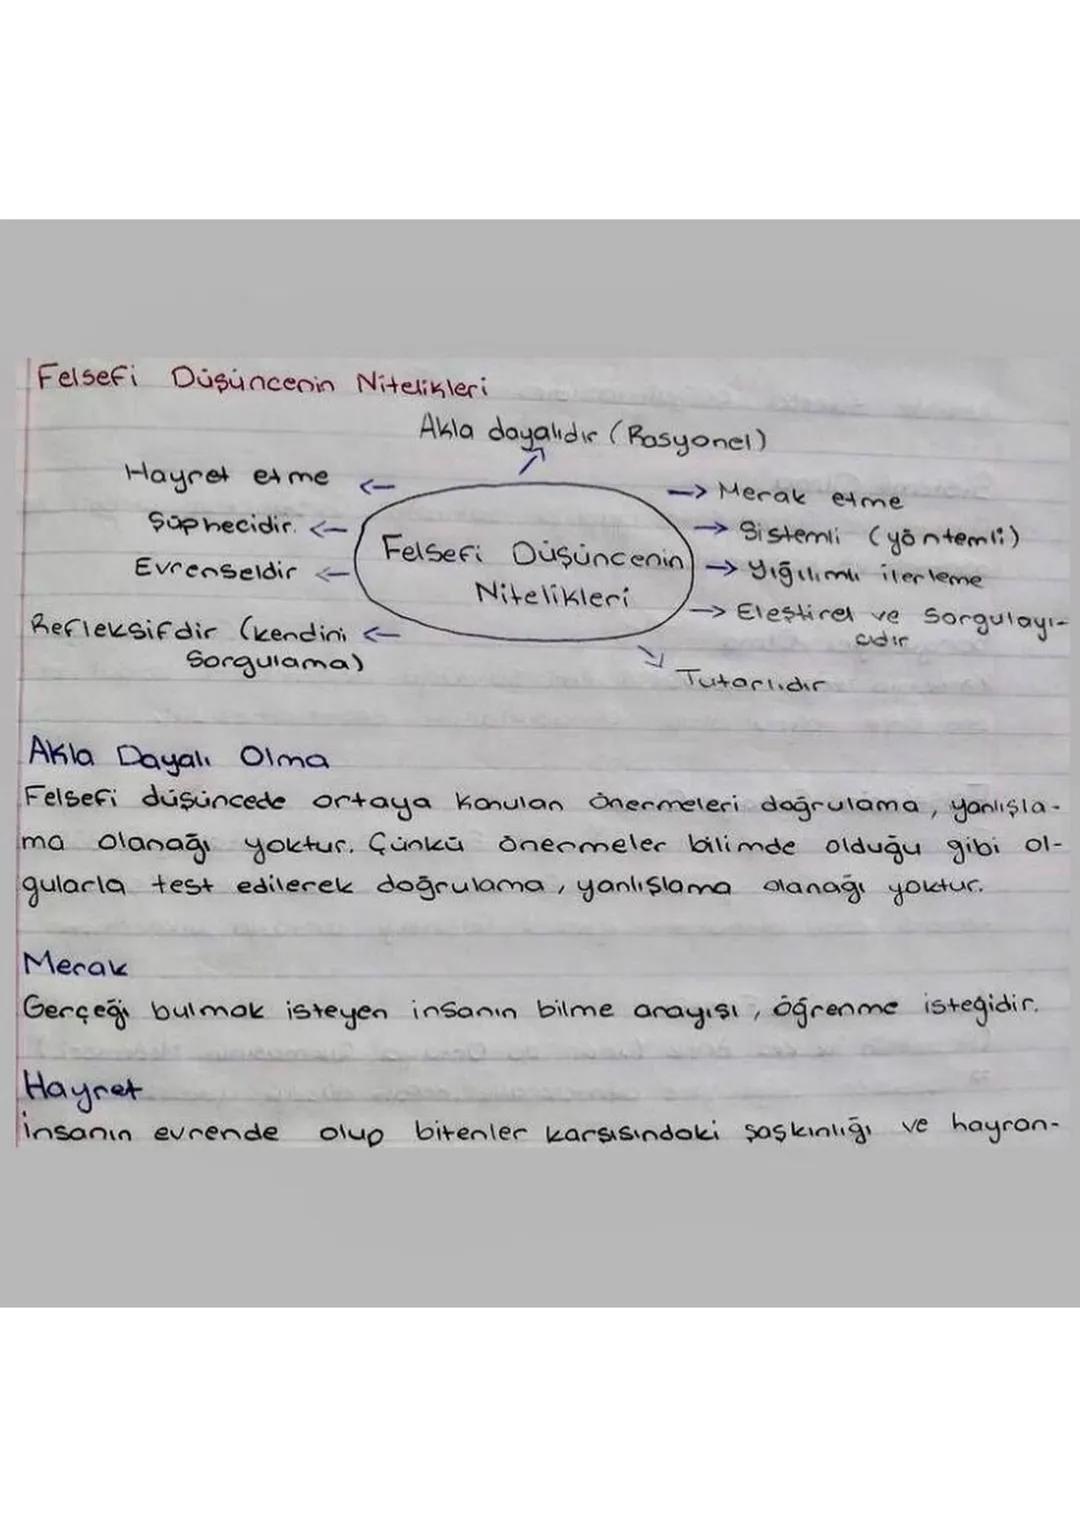 Felsefi Düşüncenin Nitelikleri
Akla dayalıdır (Rasyonel)
Hayret etme
Şüphecidir.
Evrenseldir
Refleksifdir (kendini
sorgulama)
Felsefi Düşüncenin
Nitelikleri
Merak etme
Sistemli (yöntemli)
Yığılımlı ilerleme
Eleştirel ve sorgulayı-
cıdır
Tutarlıdır
Akla Dayalı Olma
Felsefi düşüncede ortaya konulan önermeleri doğrulama, yanlışla-
ma olanağı yoktur. Çünkü önermeler bilimde olduğu gibi ol-
gularla test edilerek doğrulama, yanlışlama olanağı yoktur.
Merak
Gerçeği bulmak isteyen insanın bilme arayışı, öğrenme isteğidir.
Hayret
İnsanın evrende olup bitenler karşısındaki şaşkınlığı ve hayran-